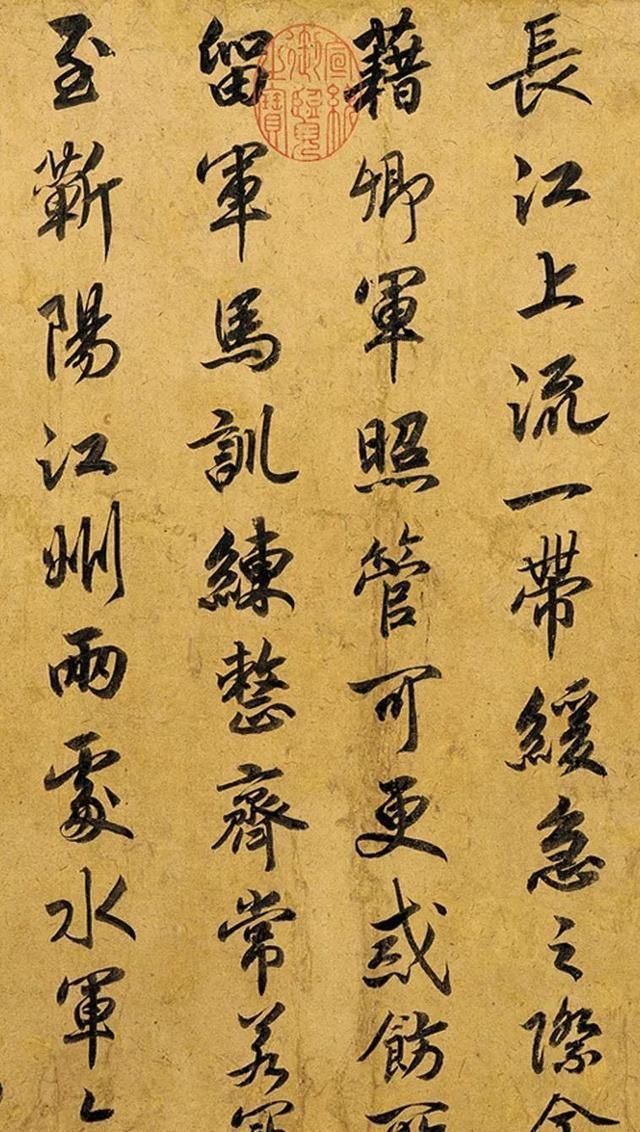 長江上流一帶緩急之際全
藉卿軍照管可更戒飭所
留軍馬訓練整齊常若寇
至蘄陽江州兩處水軍亦